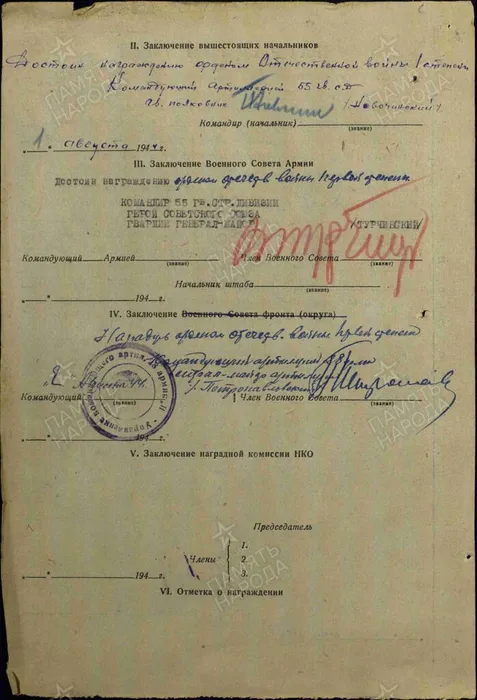 II. Заключение вышестоящих начальников
Достоин награждению орденом Отечественной войны I степени
Командующий Артиллерией 55 гв. сд
гв. полковник /Новочинский/
Командир (начальник)
(звание)
"1" августа 1944 г.
III. Заключение Военного Совета Армии
Достоин награждению орденом отечеств. войны первой степени
КОМАНДИР 55 ГВ. СТР. ДИВИЗИИ
ГЕРОЙ СОВЕТСКОГО СОЮЗА
ГВАРДИИ ГЕНЕРАЛ-МАЙОР /ТУРЧИНСКИЙ/
Командующий Армией
(звание)
Член Военного Совета
(звание)
Начальник штаба
(звание)
" " 194 г.
IV. Заключение Военного Совета фронта (округа)
орденом отечеств. войны первой степени
Командующий артиллерией
генерал-майор артиллерии
"2" Августа 44.
Командующий
(звание)
Член Военного Совета
(звание)
" " 194 г.
V. Заключение наградной комиссии НКО
Председатель
Члены
1.
2.
3.
" " 194 г.
VI. Отметка о награждении
ПАМЯТЬ НАРОДА